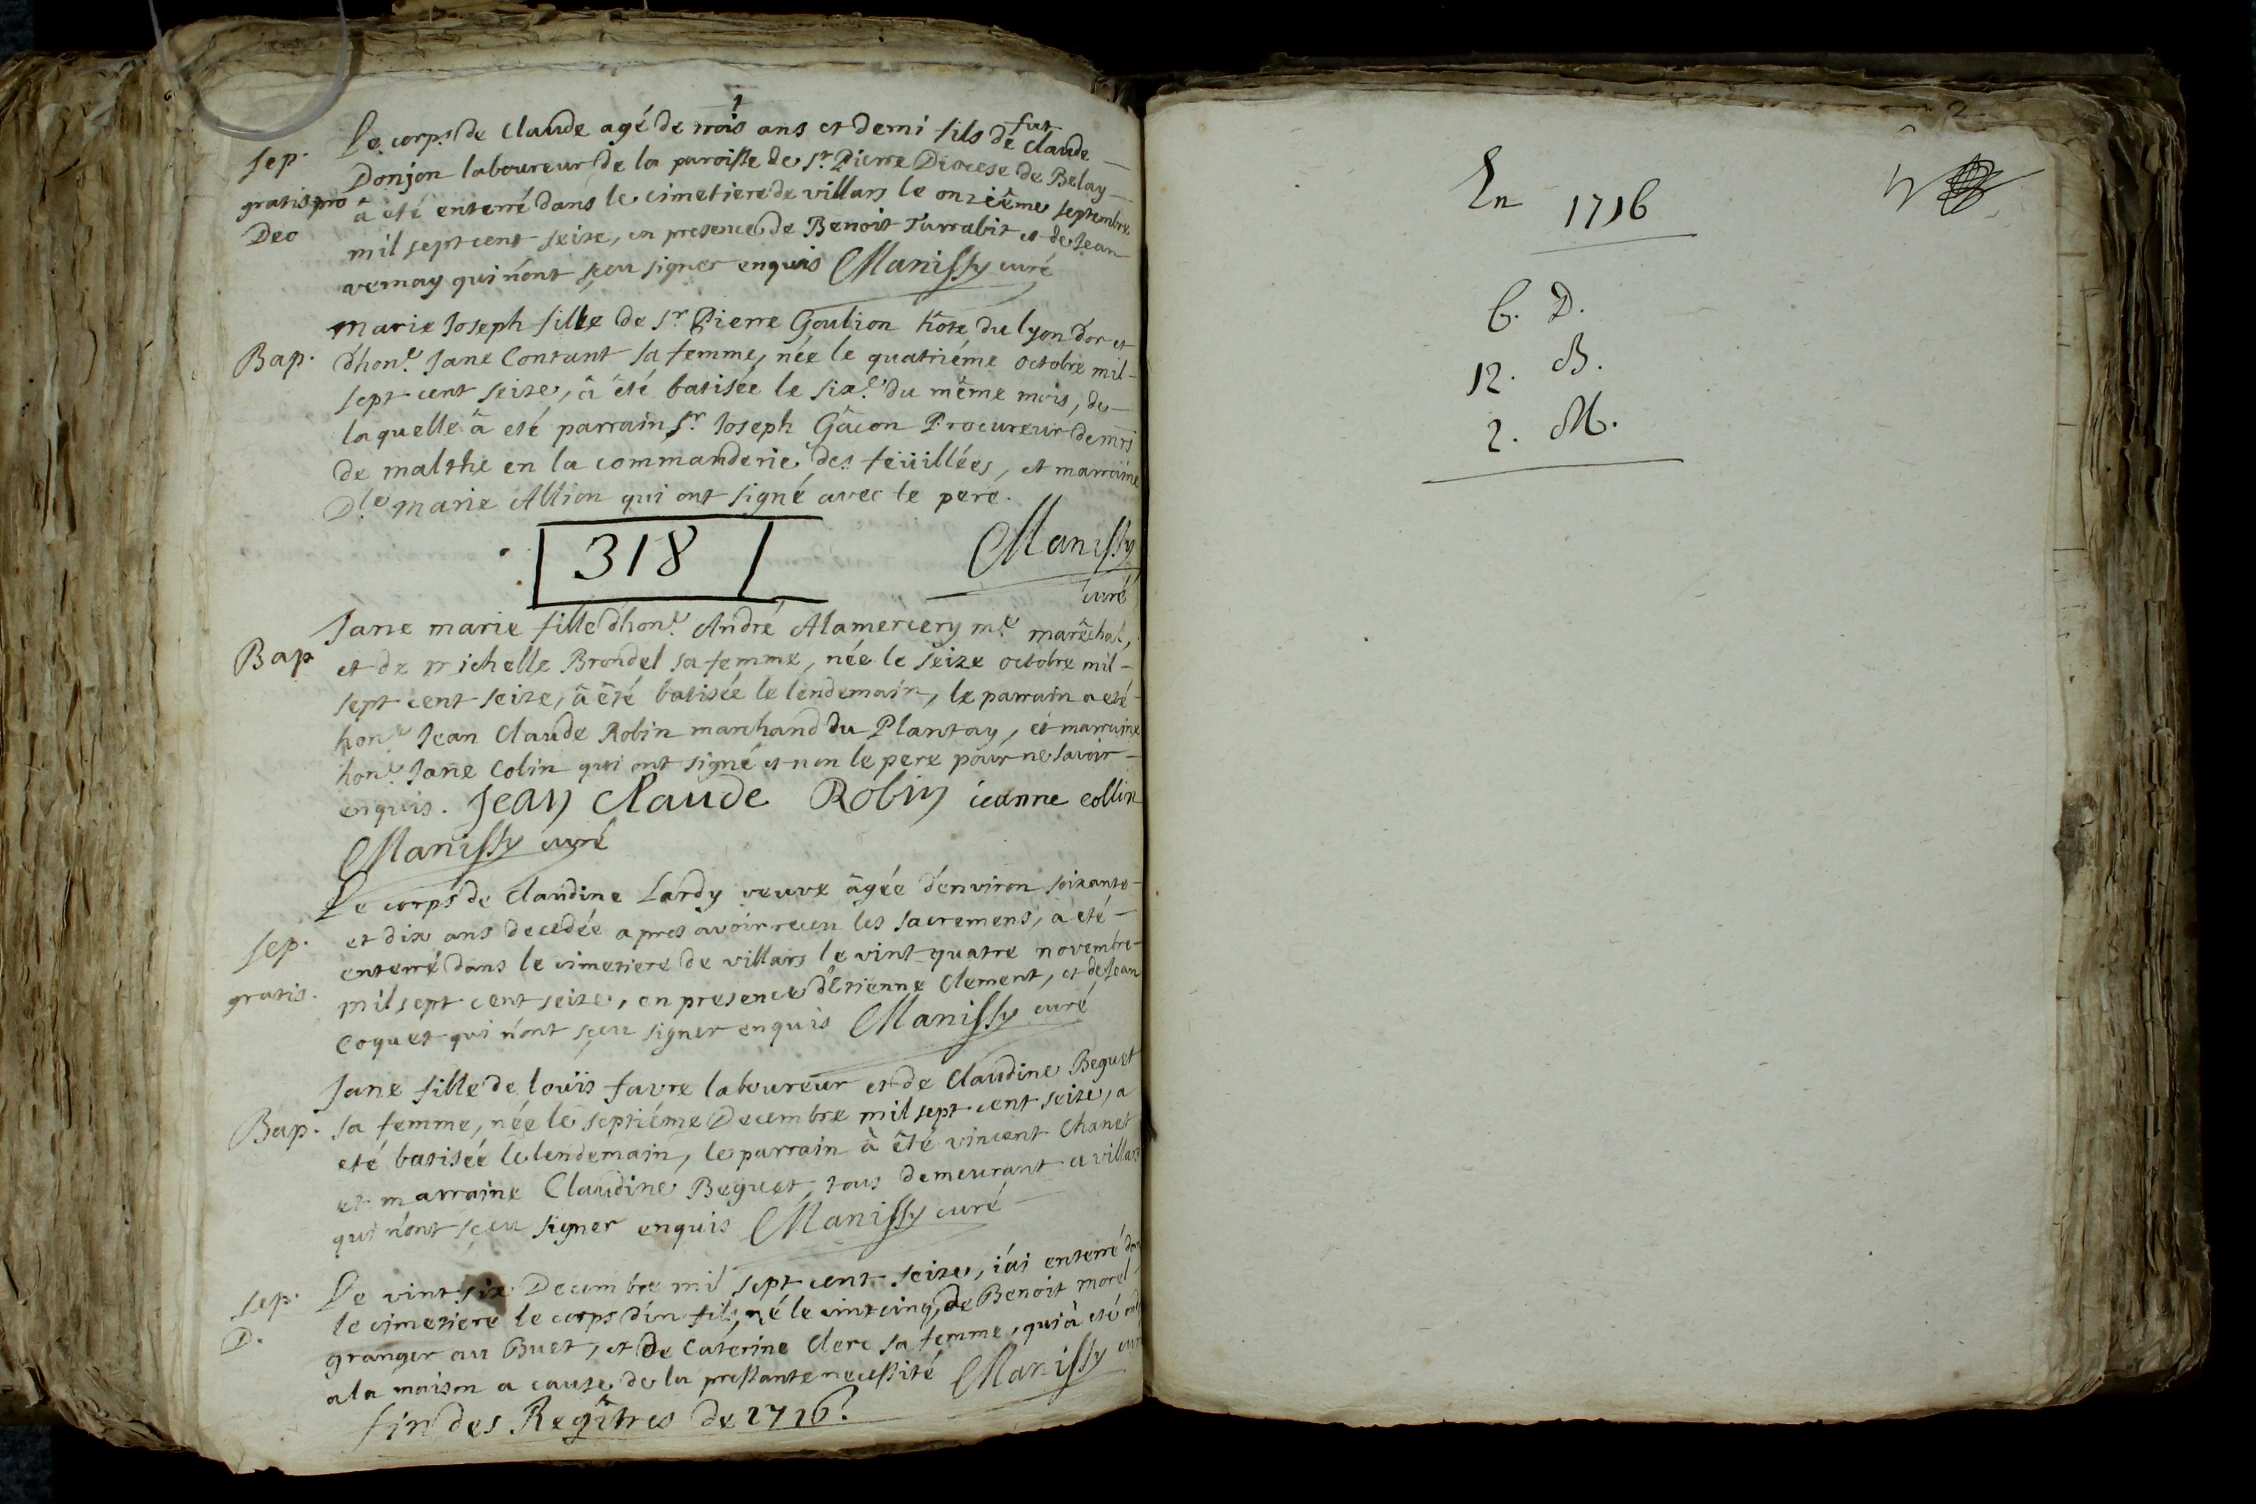 Le corps de Claude agé de trois ans et demi fils de fut Claude
Sep. Donjon laboureur de la paroisse de St Pierre Diocese de Belay
gratis pro â eté enterré dans le cimetiere de villars le onziême septembre
Deo mil sept cent seize, en presence de Benoit Turrabit et de Jean
vernay qui n'ont sçeu signer enquis Manissy curé
Marie Joseph fille de Sr Pierre Goulion hôte du lyon d'or et
Bap. d'hone Jane Contant sa femme, née le quatriéme octobre mil
sept cent seize, â êté batisée le sixe du même mois, de
laquelle â eté parrain Sr Joseph Gâcon Procureur de mrs
de malthe en la commanderie des feüillées, et marraine
Dle marie Allion qui ont signé avec le pere.
318
Manissy
curé
Jane marie fille d'hone André Alamercery me marêchal,
Bap et de michelle Brondel sa femme, née le seize octobre mil
sept cent seize, â êté batisée le lendemain, le parrain a eté
hone Jean Claude Robin marchand du Plantay, et marraine
hone Jane Colin qui ont signé et non le pere pour ne savoir
enquis. Jean Claude Robin ieanne collin
Manissy curé
Le corps de Claudine Lardy veuve âgée d'environ soixante
Sep. et dix ans decedée apres avoir receu les sacremens, a eté
enterré dans le cimetiere de villars le vint quatre novembre
gratis. mil sept cent seize, en presence d'Etienne Clement, et de Jean
Coquet qui n'ont sçeu signer enquis Manissy curé
Jane fille de louïs favre laboureur et de Claudine Beguet
Bap. sa femme, née le septiéme Decembre mil sept cent seize, a
eté batisée le lendemain, le parrain à êté vincent Chanet
et marraine Claudine Beguet, tous demeurant a villars
qui n'ont sçeu signer enquis Manissy curé
Sep. Le vint six Decembre mil sept cent seize, i'ai enterré dans
D. le cimetiere le corps d'un fils, né le vint cinq, de Benoit morel
granger au Buet, et de Caterine Clerc sa femme, qui à eté
a la maison a cause de la pressante necessité Manissy curé
fin des Regîtres de 1716.
2
En 1716
6. D.
12. B.
2. M.